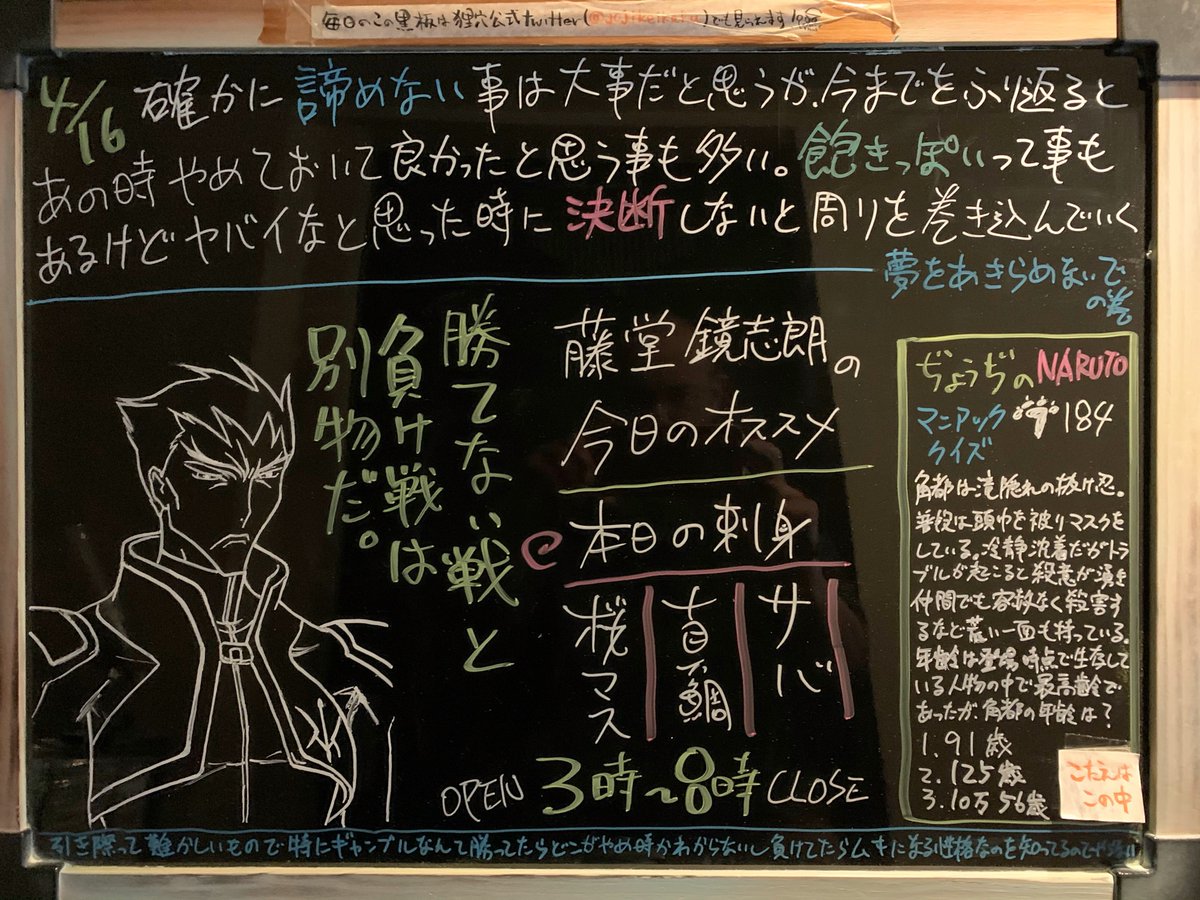 毎日のこの黒板は狸穴公式twitter(でも見られます
4/16 確かに諦めない事は大事だと思うが、今までをふり返ると
あの時やめておいて良かったと思う事も多い。飽きっぽいって事も
あるけどヤバイなと思った時に決断しないと周りを巻き込んでいく
夢をあきらめないで
の巻
勝てない戦と
負け戦は
別物だ。
藤堂鏡志朗の
今日のオススメ
本日の刺身
サバ
真鯛
桜マス
OPEN 3時〜8時 CLOSE
ぢょうぢのNARUTO
マニアック
クイズ
184
角都は滝隠れの抜け忍。
普段は頭巾を被りマスクを
している。冷静沈着だがトラ
ブルが起こると殺意が湧き
仲間でも容赦なく殺害す
るなど荒い一面も持っている。
年齢は登場時点で生存して
いる人物の中で最高齢で
あったが、角都の年齢は?
1.91歳
2.125歳
3.10万56歳
こたえは
この中
引き際って難かしいもので特にギャンブルなんて勝ってたらどこがやめ時かわからないし負けてたらムキになる性格なのを知ってるので